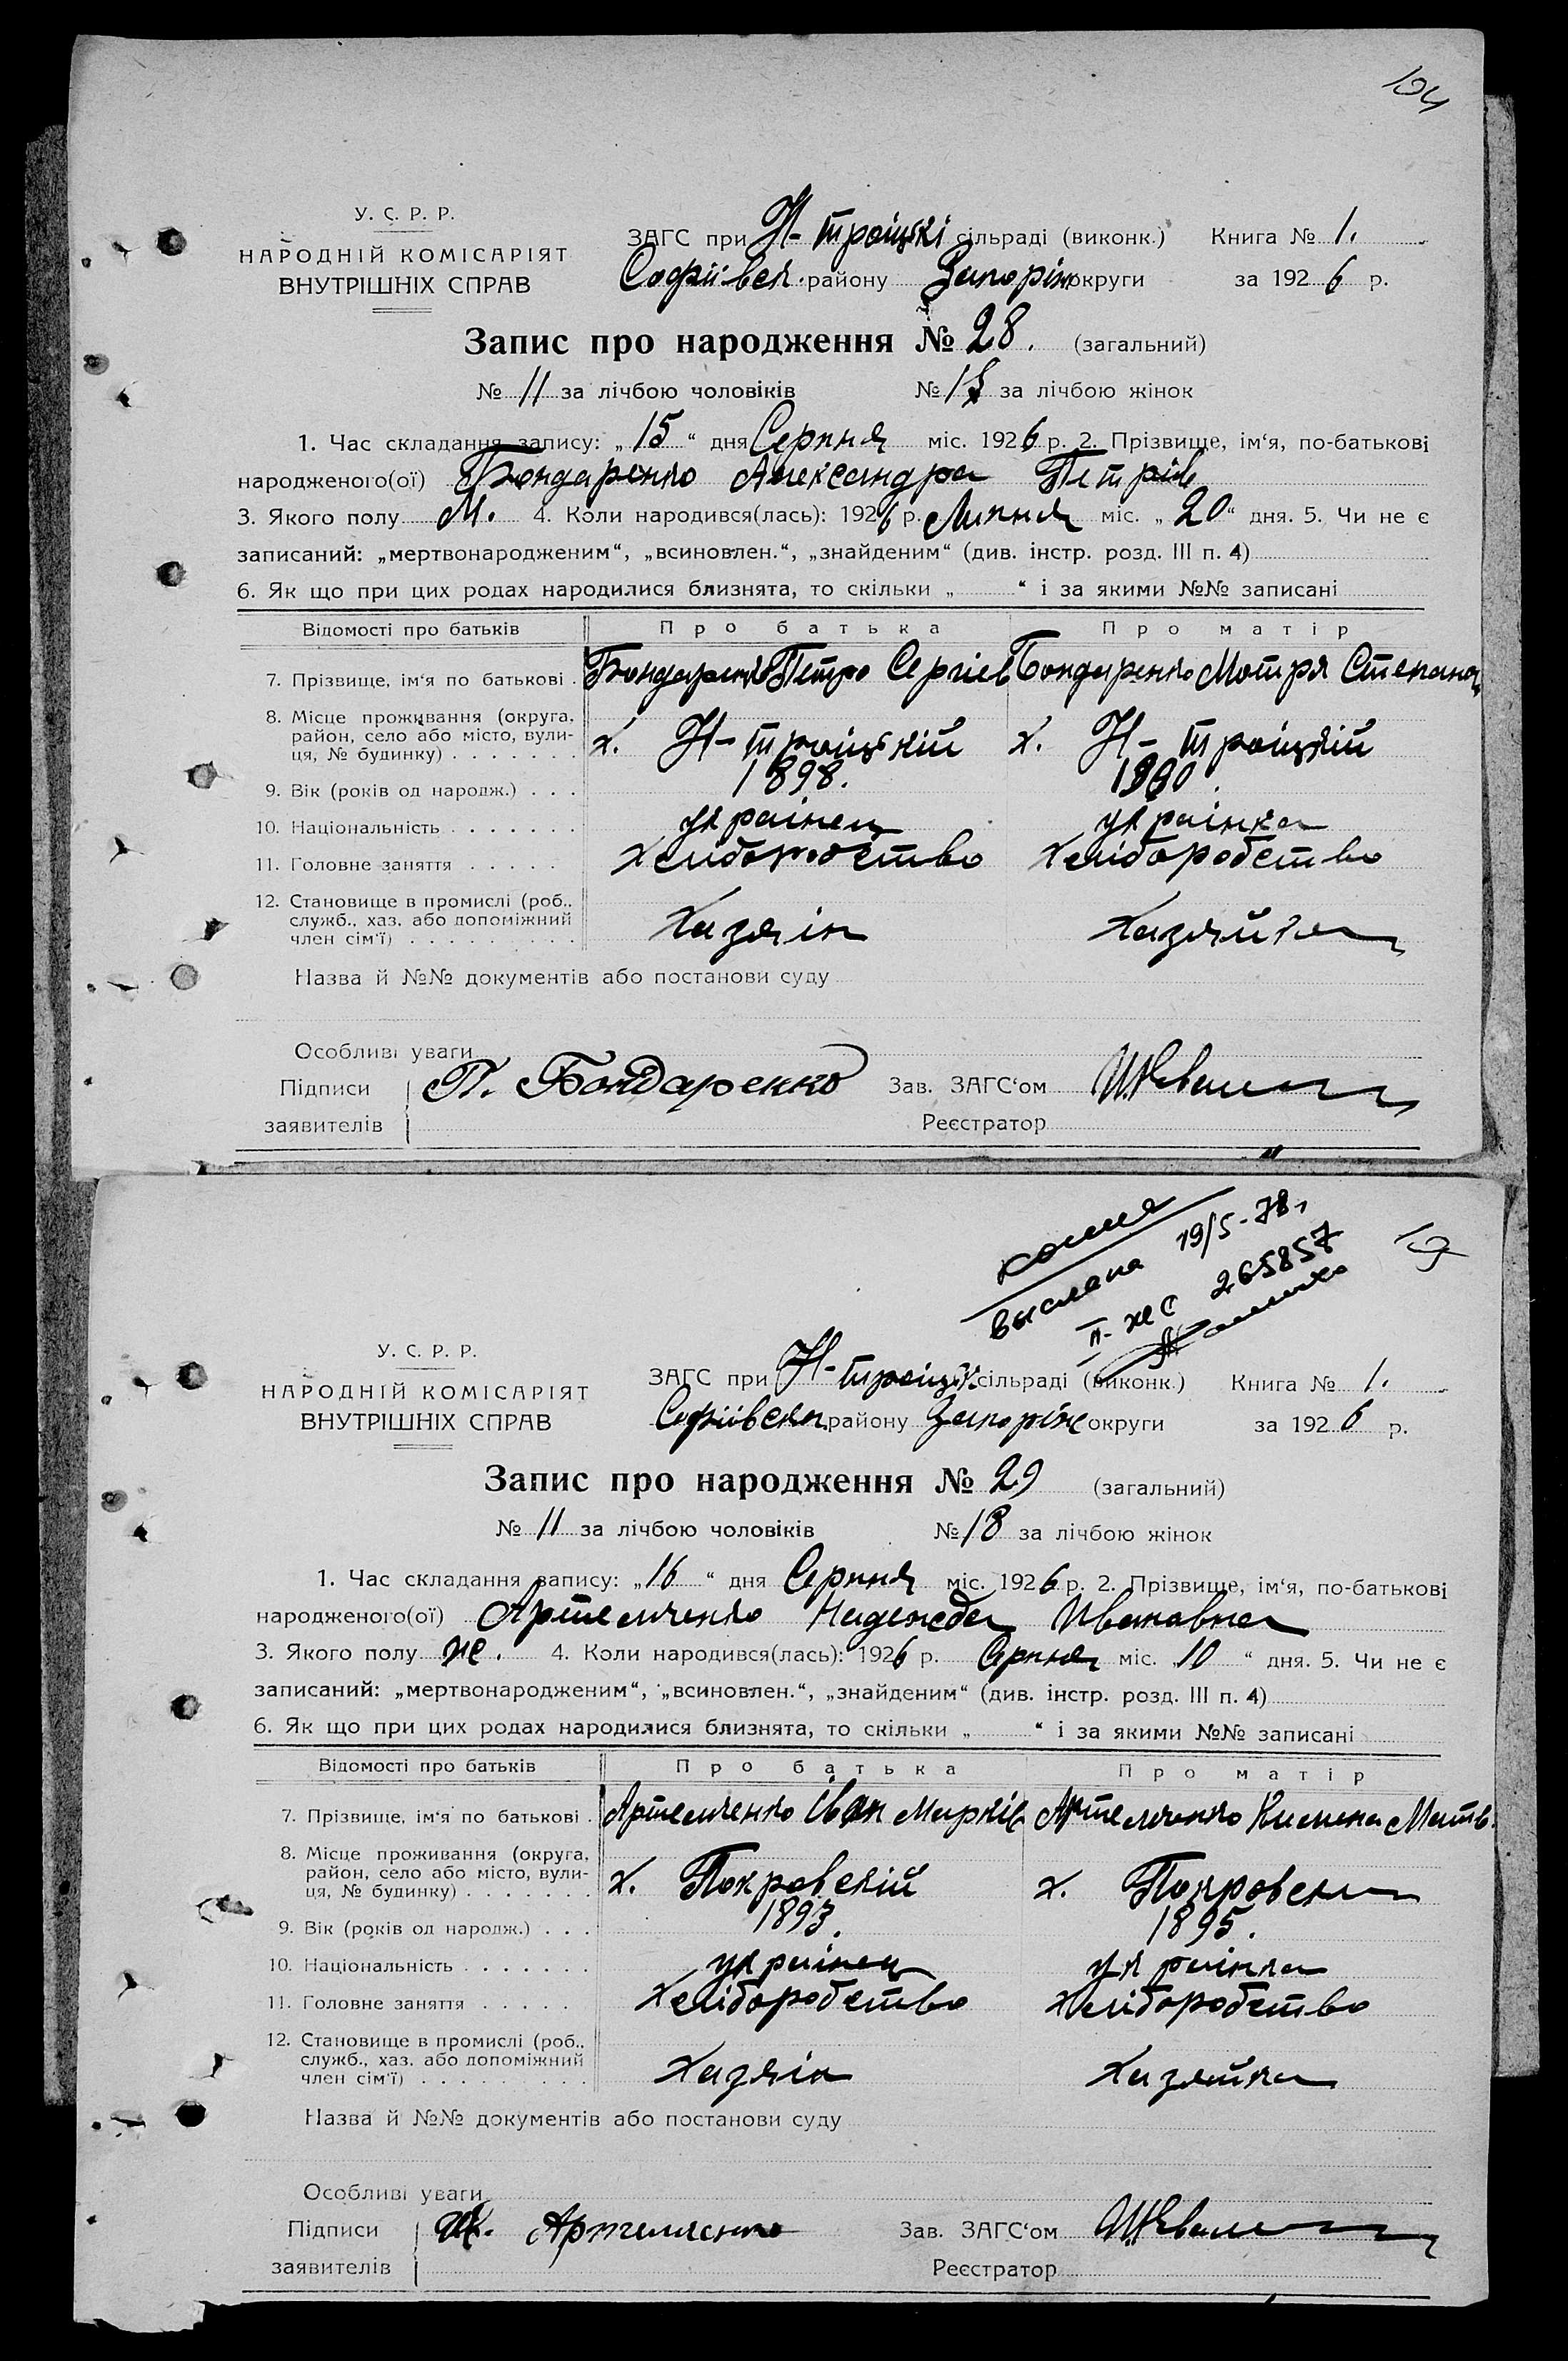 104
У. С. Р. Р.
НАРОДНІЙ КОМІСАРІЯТ
ВНУТРІШНІХ СПРАВ
ЗАГС при Н-троіцькі сільраді (виконк.) Книга № 1.
Софіївськ. району Запоріж округи за 1926 р.
Запис про народження № 28. (загальний)
№ 11 за лічбою чоловіків № за лічбою жінок
1. Час складання запису: „15“ дня Серпня міс. 1926 р. 2. Прізвище, ім‘я, по-батькові
народженого(ої) Бондаренко Александра Петрів
3. Якого полу М. 4. Коли народився(лась): 1926 р. Липня міс. „20“ дня. 5. Чи не є
записаний: „мертвонародженим“, „всиновлен.“, „знайденим“ (див. інстр. розд. III п. 4)
6. Як що при цих родах народилися близнята, то скільки „ “ і за якими №№ записані
Відомості про батьків Про батька Про матір
7. Прізвище, ім‘я по батькові . Бондаренко Петро Сергіев Бондаренко Мотря Степанов
8. Місце проживання (округа,
район, село або місто, вули-
ця, № будинку) . . . . . . . х. Н-троіцькій х. Н-троіцькій
9. Вік (років од народж.) . . . 1898.
10. Національність . . . . . . . украінец украінка
11. Головне заняття . . . . . хліборобство хліборобство
12. Становище в промислі (роб.,
служб., хаз. або допоміжний
член сім‘ї) . . . . . . . . . Хазяін Хазяйка
Назва й №№ документів або постанови суду
Особливі уваги
Підписи П. Бондаренко Зав. ЗАГС‘ом
заявителів Реєстратор
копия
выслана 19/5-78г
II-жс 265857
У. С. Р. Р.
НАРОДНІЙ КОМІСАРІЯТ
ВНУТРІШНІХ СПРАВ
ЗАГС при Н-троіцьк. сільраді (виконк.) Книга № 1.
Софіівськ. району Запоріж округи за 1926 р.
Запис про народження № 29 (загальний)
№ 11 за лічбою чоловіків № 18 за лічбою жінок
1. Час складання запису: „16“ дня Серпня міс. 1926 р. 2. Прізвище, ім‘я, по-батькові
народженого(ої) Артемченко Надежда Ивановна
3. Якого полу же. 4. Коли народився(лась): 1926 р. Серпня міс. „10“ дня. 5. Чи не є
записаний: „мертвонародженим“, „всиновлен.“, „знайденим“ (див. інстр. розд. III п. 4)
6. Як що при цих родах народилися близнята, то скільки „ “ і за якими №№ записані
Відомості про батьків Про батька Про матір
7. Прізвище, ім‘я по батькові . Артемченко Іван Марків Артемченко Килина Матв.
8. Місце проживання (округа,
район, село або місто, вули-
ця, № будинку) . . . . . . . х. Покровскій х. Покровськ
9. Вік (років од народж.) . . . 1893. 1895.
10. Національність . . . . . . . украінец украінка
11. Головне заняття . . . . . хліборобство хліборобство
12. Становище в промислі (роб.,
служб., хаз. або допоміжний
член сім‘ї) . . . . . . . . . хазяін хазяйка
Назва й №№ документів або постанови суду
Особливі уваги
Підписи Артемченко Зав. ЗАГС‘ом
заявителів Реєстратор